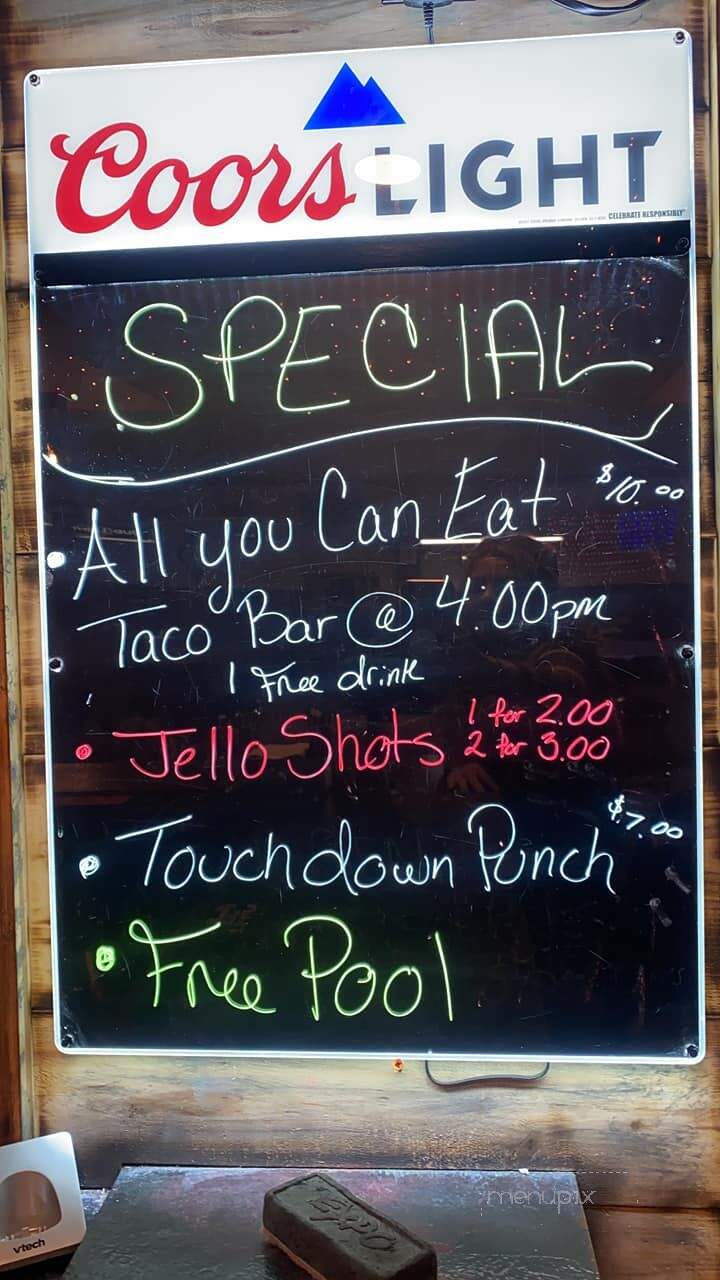 Coors LIGHT
CELEBRATE RESPONSIBLY
SPECIAL
• All you Can Eat $10.00
Taco Bar @ 4.00pm
1 Free drink
• Jello Shots 1 for 2.00
2 for 3.00
• Touchdown Punch $7.00
• Free Pool
vtech
EXPO
menupix